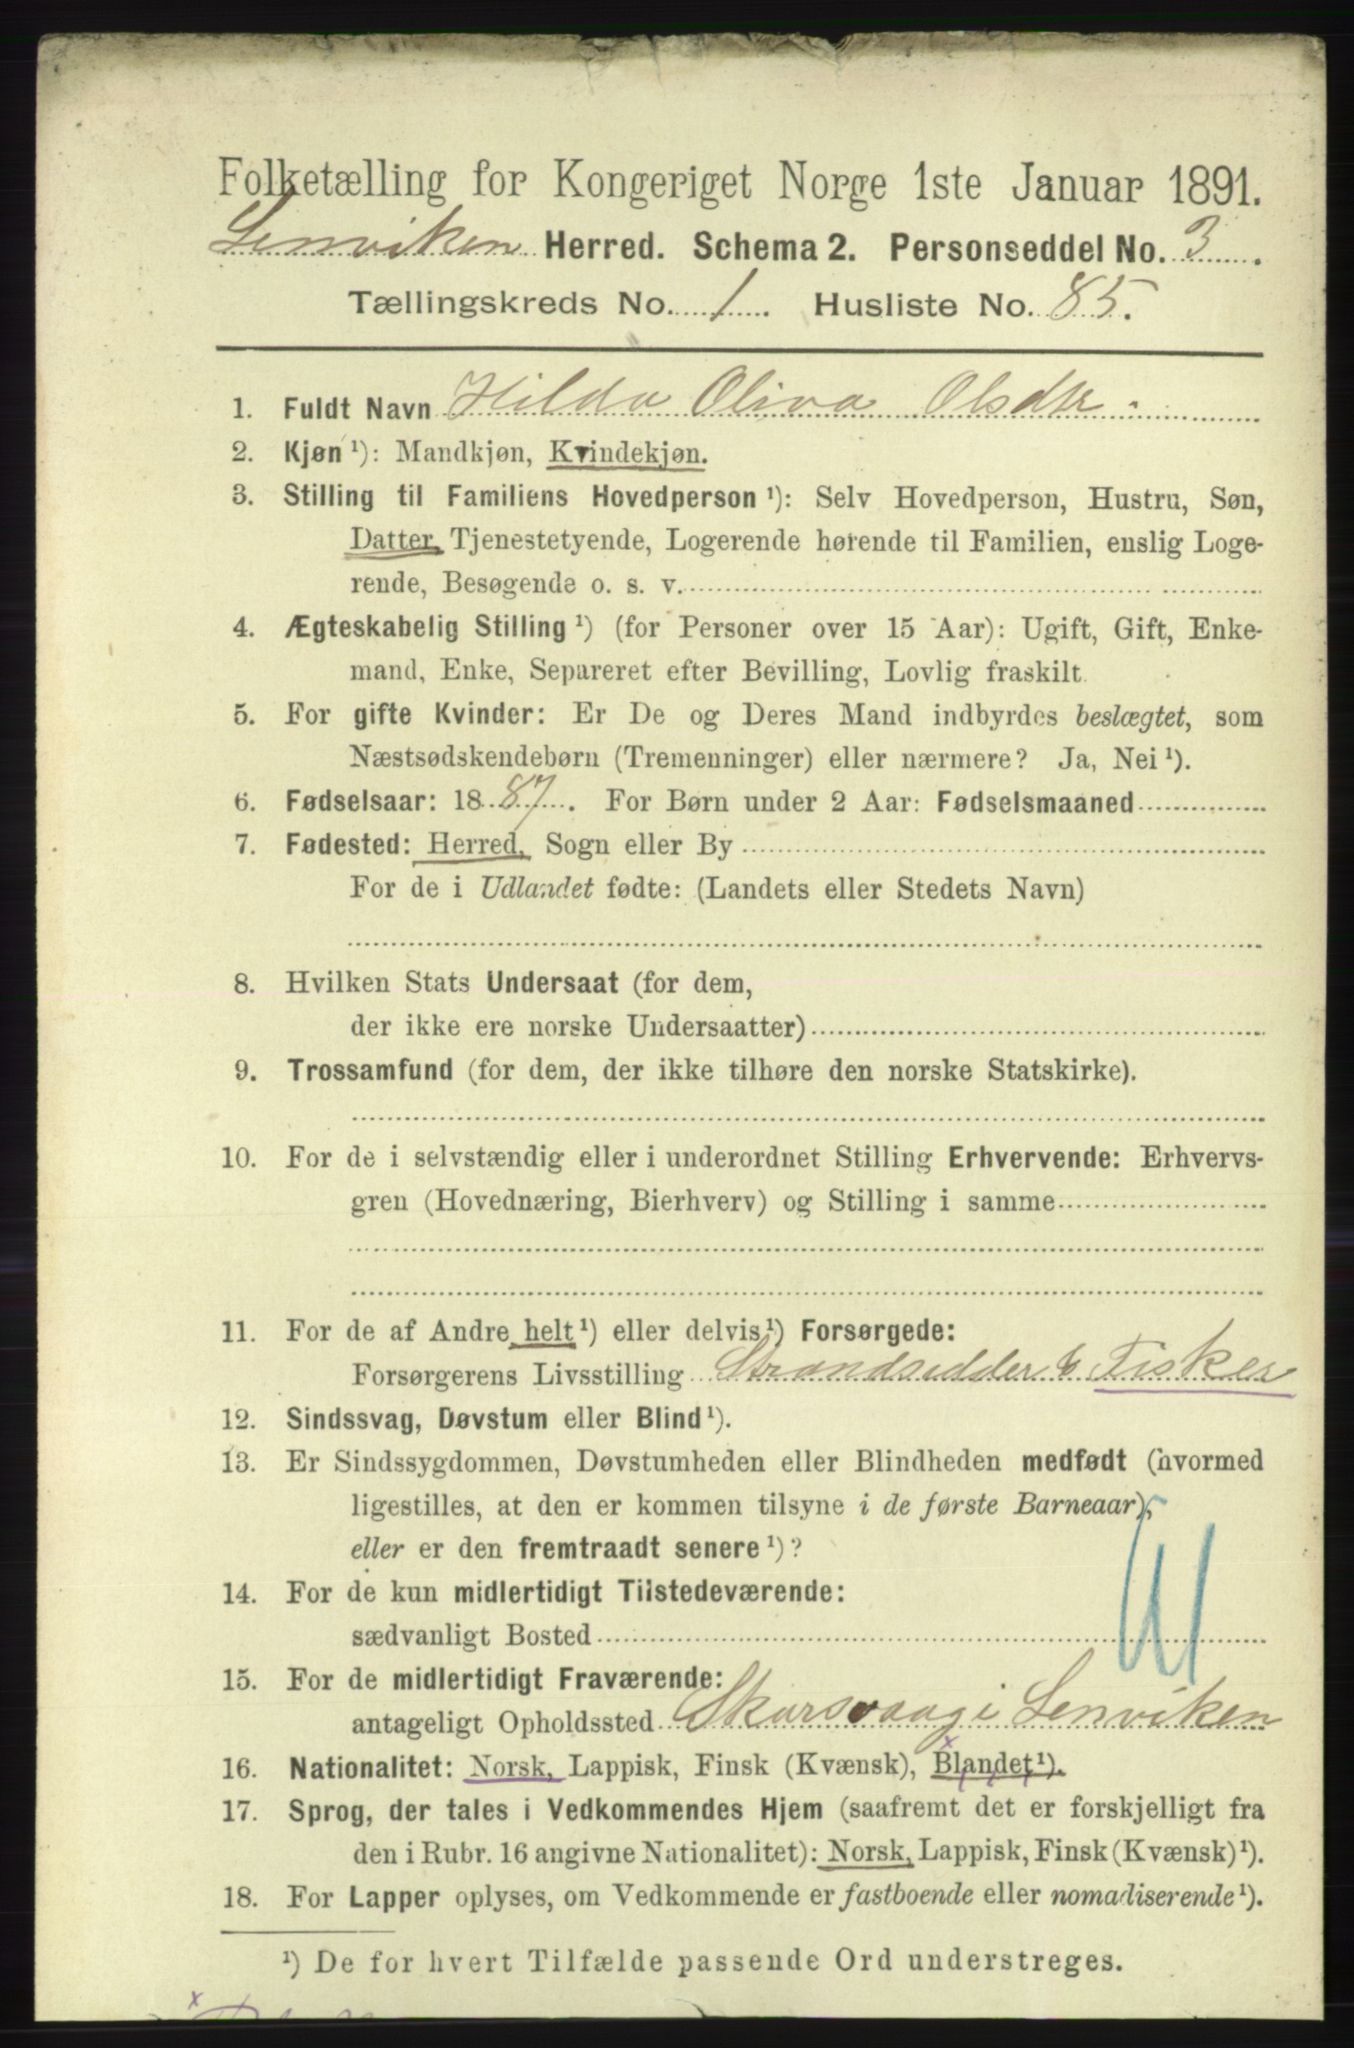 Folketælling for Kongeriget Norge 1ste Januar 1891.
Lenviken Herred. Schema 2. Personseddel No. 3.
Tællingskreds No. 1. Husliste No. 85.
1. Fuldt Navn Hilda Oliva Olsdtr.
2. Kjøn ¹): Mandkjøn, Kvindekjøn.
3. Stilling til Familiens Hovedperson ¹): Selv Hovedperson, Hustru, Søn,
Datter, Tjenestetyende, Logerende hørende til Familien, enslig Loge-
rende, Besøgende o. s. v.
4. Ægteskabelig Stilling ¹) (for Personer over 15 Aar): Ugift, Gift, Enke-
mand, Enke, Separeret efter Bevilling, Lovlig fraskilt.
5. For gifte Kvinder: Er De og Deres Mand indbyrdes beslægtet, som
Næstsødskendebørn (Tremenninger) eller nærmere? Ja, Nei ¹).
6. Fødselsaar: 1887. For Børn under 2 Aar: Fødselsmaaned
7. Fødested: Herred, Sogn eller By
For de i Udlandet fødte: (Landets eller Stedets Navn)
8. Hvilken Stats Undersaat (for dem,
der ikke ere norske Undersaatter)
9. Trossamfund (for dem, der ikke tilhøre den norske Statskirke).
10. For de i selvstændig eller i underordnet Stilling Erhvervende: Erhvervs-
gren (Hovednæring, Bierhverv) og Stilling i samme
11. For de af Andre helt ¹) eller delvis ¹) Forsørgede:
Forsørgerens Livsstilling Strandsidder & Fisker
12. Sindssvag, Døvstum eller Blind ¹).
13. Er Sindssygdommen, Døvstumheden eller Blindheden medfødt (hvormed
ligestilles, at den er kommen tilsyne i de første Barneaar),
eller er den fremtraadt senere ¹)?
14. For de kun midlertidigt Tilstedeværende:
sædvanligt Bosted
15. For de midlertidigt Fraværende:
antageligt Opholdssted Skarsvaag i Lenviken
16. Nationalitet: Norsk, Lappisk, Finsk (Kvænsk), Blandet ¹).
17. Sprog, der tales i Vedkommendes Hjem (saafremt det er forskjelligt fra
den i Rubr. 16 angivne Nationalitet): Norsk, Lappisk, Finsk (Kvænsk) ¹).
18. For Lapper oplyses, om Vedkommende er fastboende eller nomadiserende ¹).
¹) De for hvert Tilfælde passende Ord understreges.